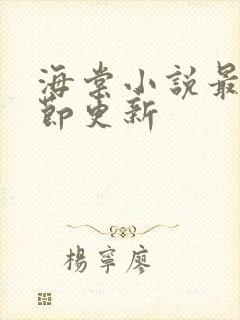 海棠小說最
節更新
楊寧廖